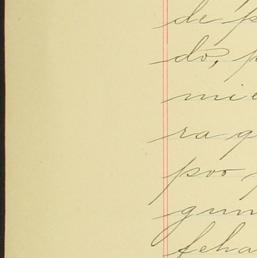 de p
do, p
mie
ra q
poo
gun
feha